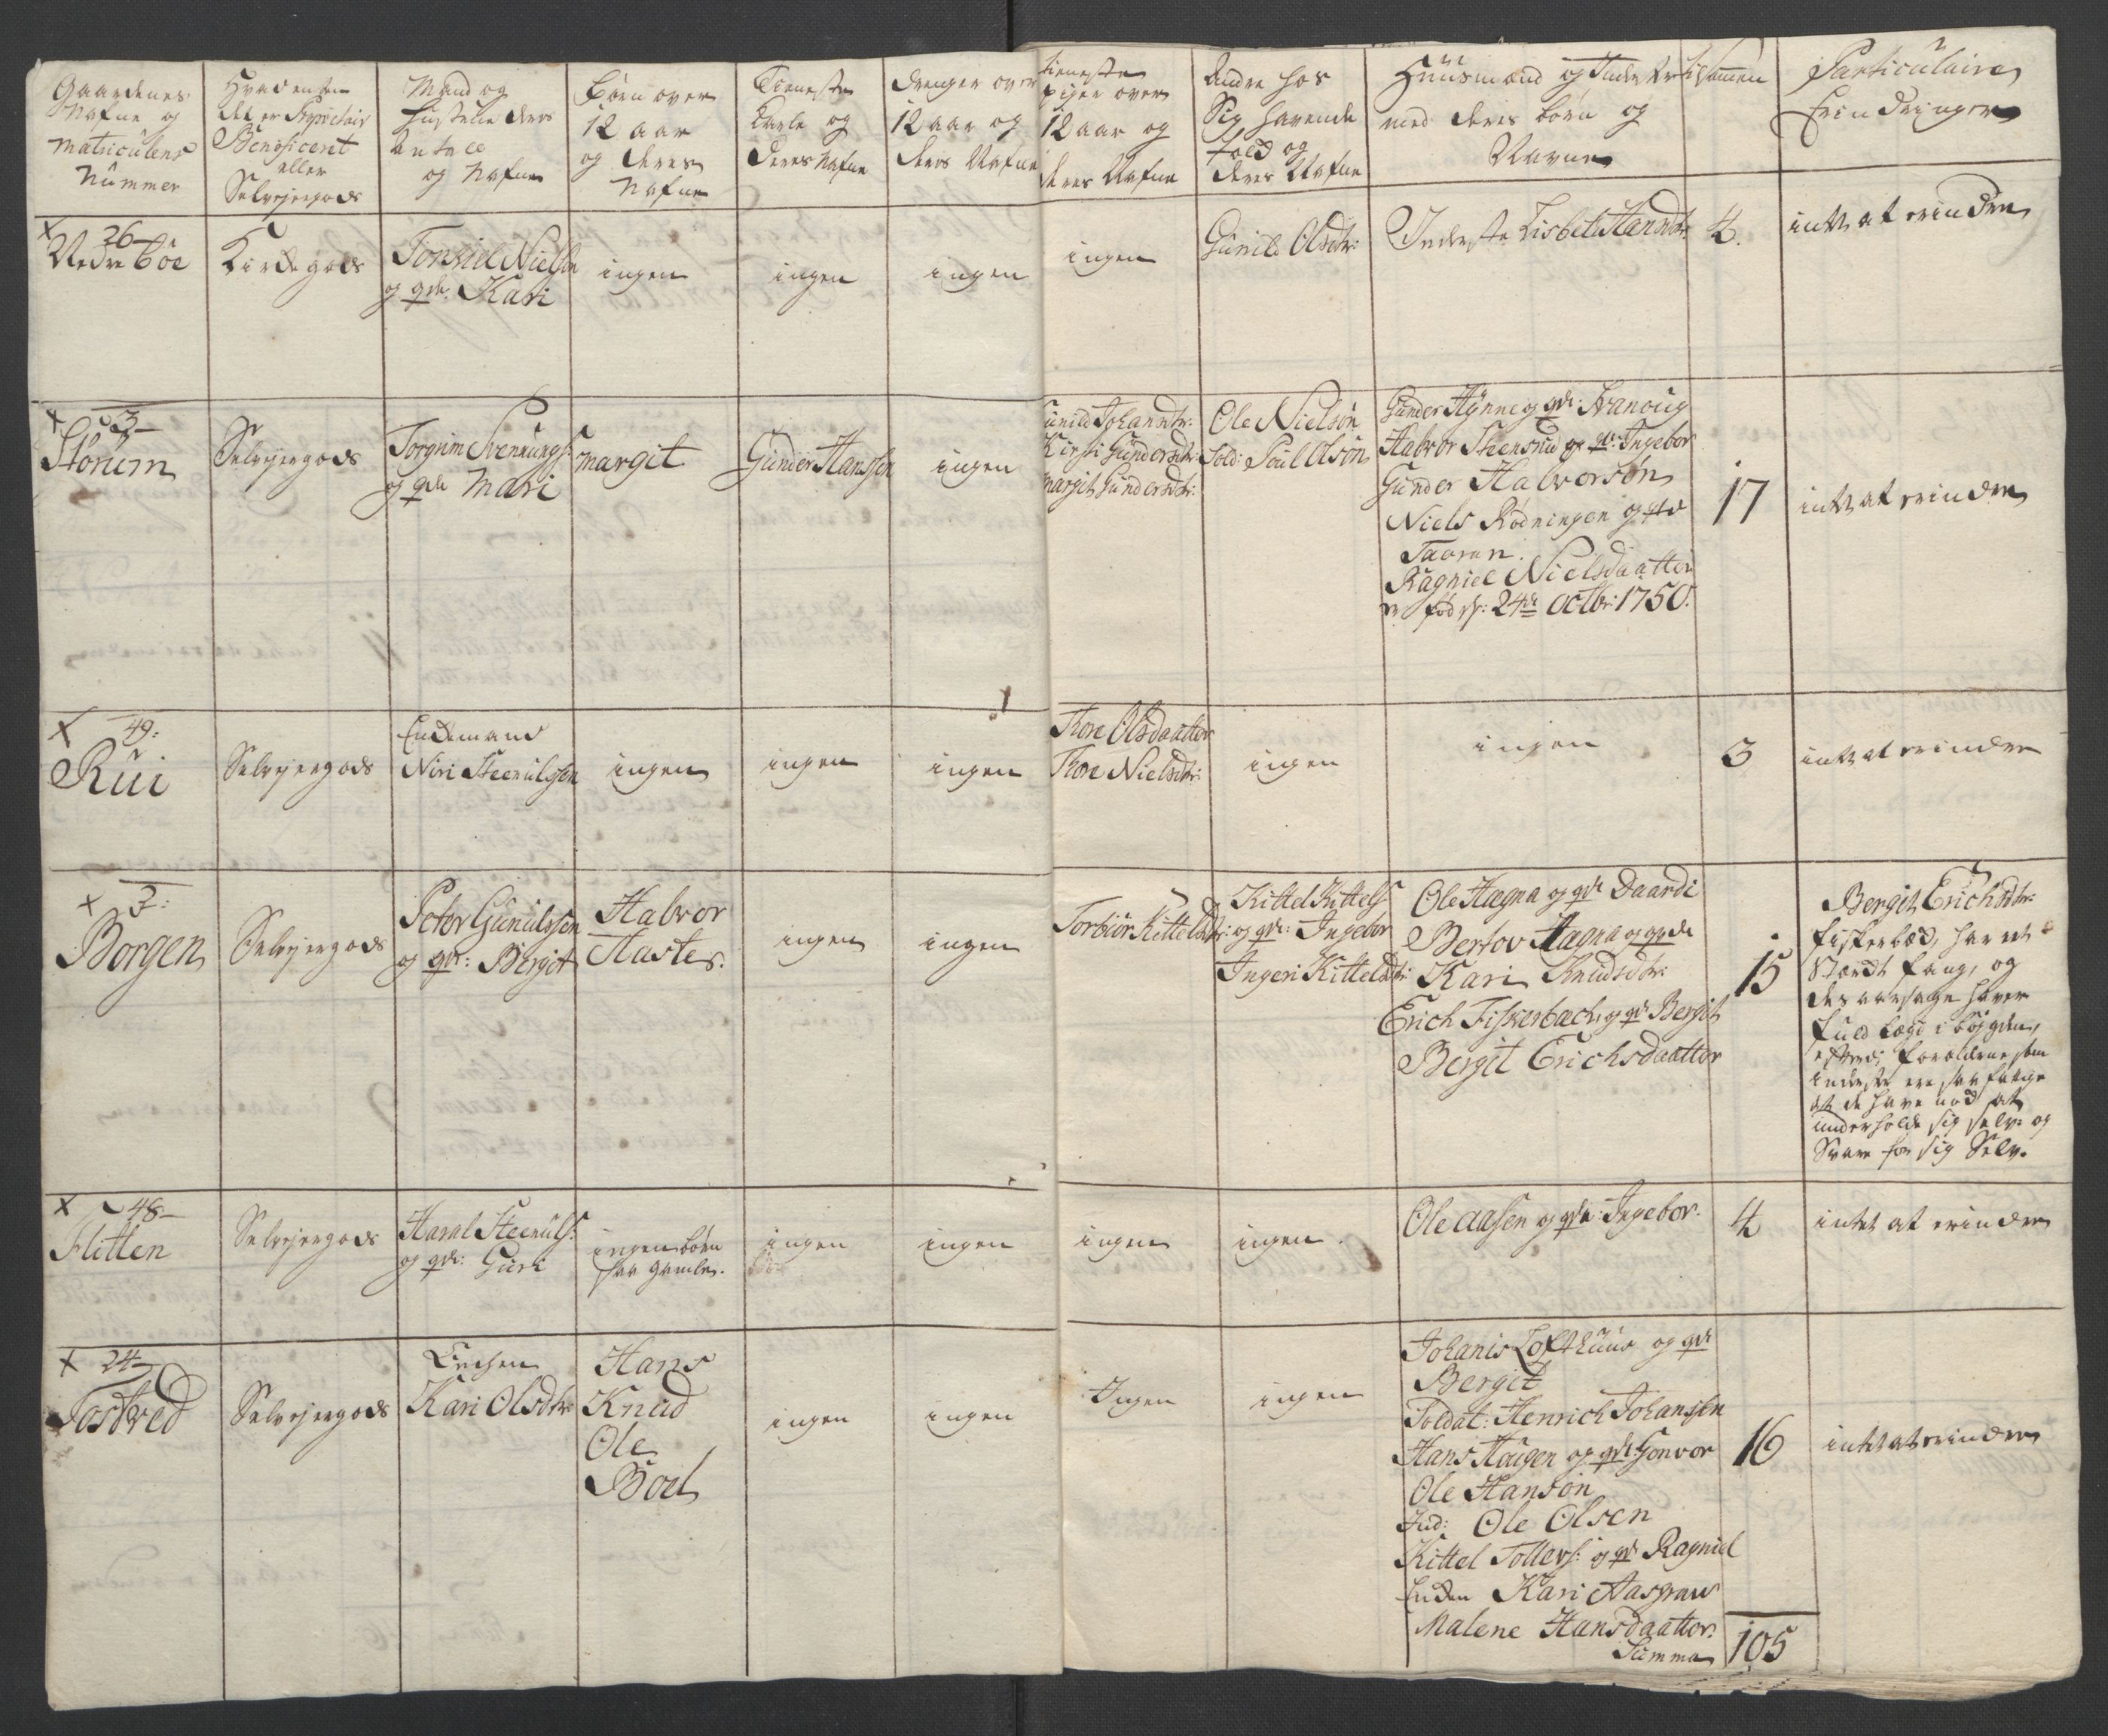 Gaardenes
Nafne og
Matriculens
Nummer
Hvad enten
det er
Beneficeret
eller
Selvejergods
Mand og
Hustrue deres
Antall
og Nafne
Børn over
12 aar
og deres
Nafne
Tieneste
Karle og
deres Nafne
Drenger over
12 aar og
deres Nafne
tieneste
piger over
12 aar og
deres Nafne
Andre hos
Sig havende
folck og
deres Nafne
Huusmænd og Inderster
med deres børn og
Navne
tilsammen
Particulaire
Erindringer
x 26
Nedre Böe
Kirckegods
Torkiel Nielsen
og qde: Kari
ingen
ingen
ingen
ingen
Gunild Olsdtr:
Inderste Lisbeth Hansdtr:
4.
intet at erindre
x 3
Storum
Selvejergods
Torgrim Svenungs:
og qde Mari
Margit
Gunder Hanssen
ingen
Gunild Johansdtr:
Kirsti Gundersdtr:
Margit Gundersdtr:
Ole Nielsøn
Sold: Poul Olsøn
Gunder Hynne og qde: Svanoug
Halvor Steensrud og qde: Ingebor
Gunder Halvorsøn
Niels Rødningen og
Taaran.
Ragniel Nielsdaatter
er fød d: 24de Octbr: 1750.
17
intet at erindre
x 49:
Rui
Selvejergods
Enckemand
Niri Steenulssen
ingen
ingen
ingen
Tore Olsdaatter
Tore Nielsdtr:
ingen
ingen
3
intet at erindre
x 2:
Borgen
Selvejergods
Peter Gunulssen
og qde: Bergit
Halvor
Aastes.
ingen
ingen
Torbiør Kittelsdtr:
Kittel Kittels:
og qde: Ingebor
Ingeri Kittelsdtr:
Ole Hagna og qde Daardi
Bertov Hagna og qde
Kari Knudsdtr:
Erich Fiskerbech og qde Bergit
Bergit Erichsdaatter
15
Bergit Erichsdtr:
Fiskerbech, har et
fang, og
des aarsage haver
fuld Lægd i bøjgden,
efterdi forældrene som
inderster ere saa fattige
at de have nød at
underholde sig selv og
Svare for sig Selv.
x 48
Flitten
Selvejergods
Haral Steenuls:
og qde: Guri
ingen børn
saa gamle.
ingen
ingen
ingen
ingen
Ole Aasen og qde: Ingebor.
4
intet at erindre
x 24
Tostved
Selvejergods
Enchen
Kari Olsdtr:
Hans
Knud
Ole
Boel
ingen
ingen
Ingen
ingen
Johanis Lofthuus og qde
Bergit
Soldat: Henrich Johansen
Hans Haugen og qde: Gonvor
Ole Hansøn
Ind: Ole Olsen
Kittel Tollevs: og qde Ragniel
Encken Kari Aasgrav
Malene Hansdaatter.
16
intet at erindre
Summa
105